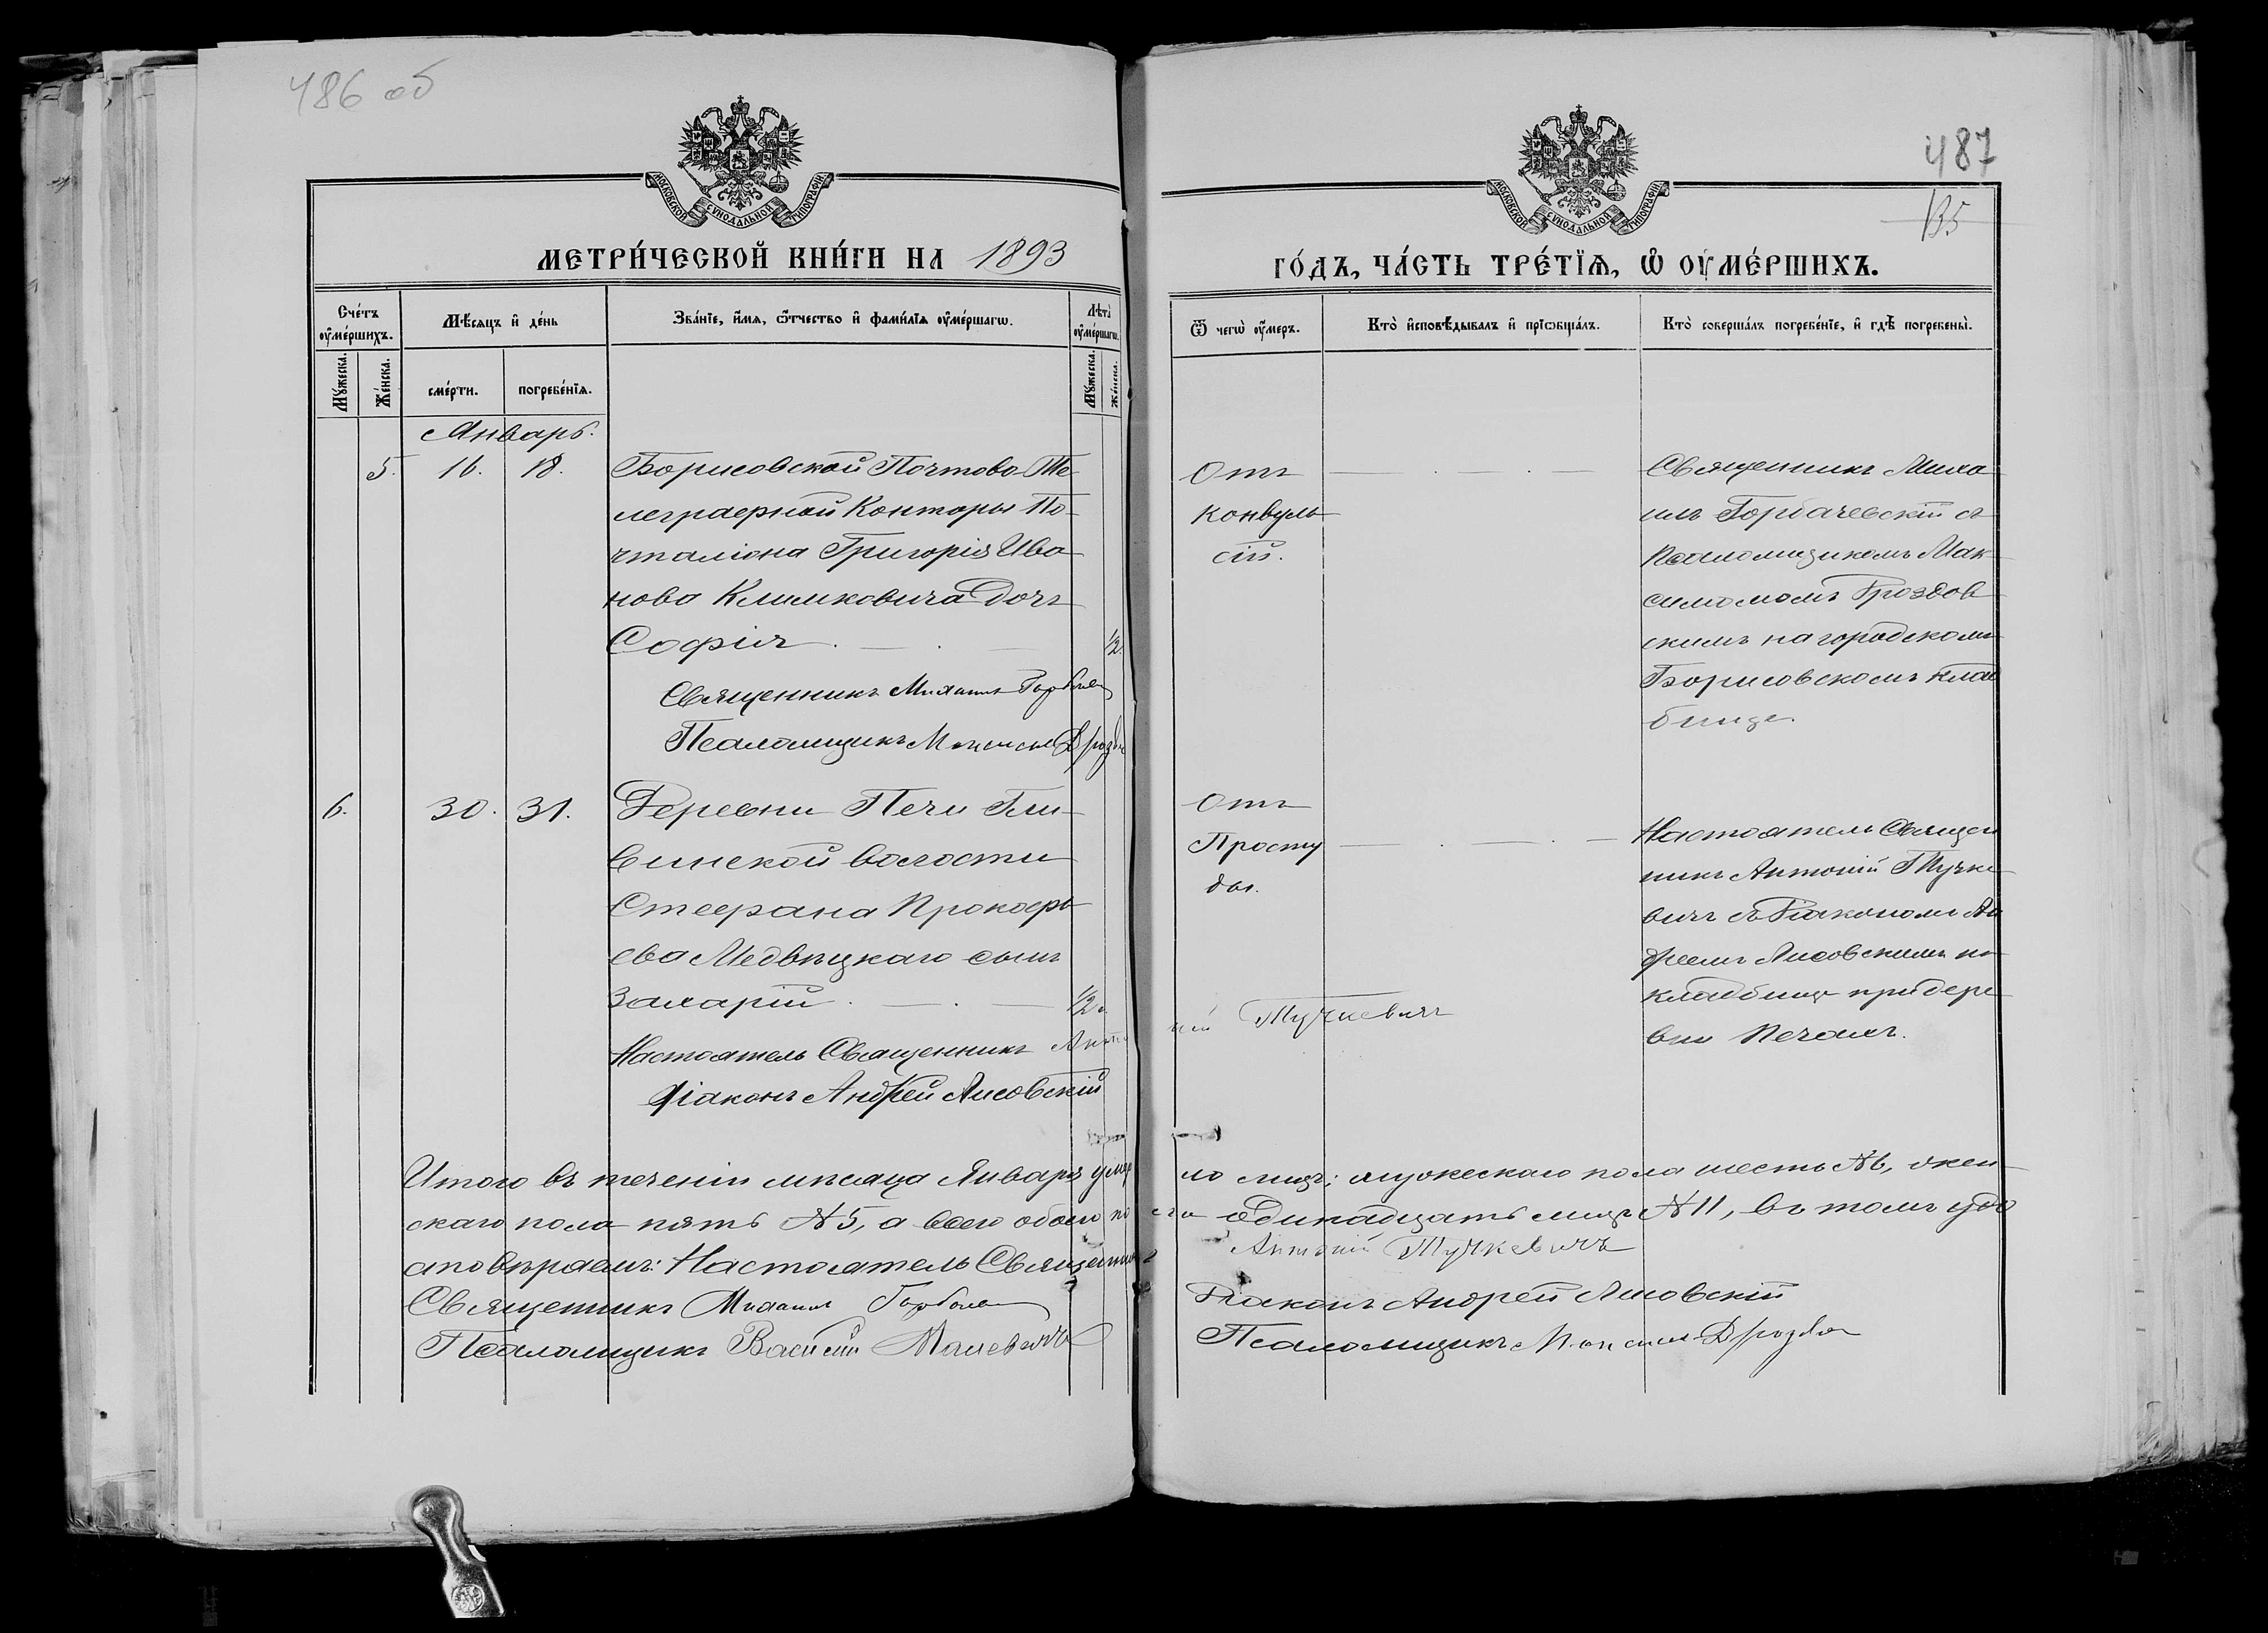 486 об
МОСКОВСКОЙ СѴНОДАЛЬНОЙ ТИПОГРАФІИ
МЕТРИ́ЧЕСКОЙ КНИ́ГИ НА 1893
Сче́тъ оу҆ме́ршихъ.
Мѣ́сяцъ и҆ де́нь
Зва́нїе, и҆́мѧ, ѻ҆́тчество и҆ фами́лїѧ оу҆ме́ршагѡ.
Лѣ́та оу҆ме́ршагѡ.
Мꙋ́жеска.
Же́нска.
сме́рти.
погребе́нїѧ.
Мꙋ́жеска.
Же́нска.
Январь.
5. 16. 18. Борисовской Почтово-Те-
леграфной Конторы По-
чталіона Григорія Ива-
нова Климковича дочь
София 1/2.
Священникъ Михаилъ
Псаломщикъ Максимъ
6. 30. 31. Деревни Печи Гли-
винской волости
Стефана Прокофь-
ева Медвѣцкаго сынъ
Захарій 1/2.
Настоятель Священникъ Анто
Діаконъ Андрей Лисовскій
Итого въ теченіи мѣсяца Января умер
скаго пола пять №5, а всего обоего по
стовѣряемъ: Настоятель Священникъ
Священникъ Михаилъ
Псаломщикъ Василій
487
135
МОСКОВСКОЙ СѴНОДАЛЬНОЙ ТИПОГРАФІИ
ГО́ДЪ, ЧА́СТЬ ТРЕ́ТЇѦ, Ѡ҆ ОУ҆МЕ́РШИХЪ.
Ѿ чегѡ̀ оу҆́меръ.
Кто̀ и҆сповѣ́дывалъ и҆ прїѡбща́лъ.
Кто̀ соверша́лъ погребе́нїе, и҆ гдѣ̀ погребены̀.
Отъ
конвуль-
сій.
Священникъ Миха-
илъ Горбачевскій съ
Псаломщикомъ Мак-
симомъ Дроздов-
скимъ на городскомъ
Борисовскомъ клад-
бище.
Отъ
Просту
ды.
Настоятель Священ
никъ Антоній Тучке-
вичъ съ Діакономъ Ан
дреемъ Лисовскимъ на
кладбище при дере-
вни Печахъ.
ній Тучкевичъ
ло лицъ: мужескаго пола шесть №6, жен-
ла одинадцать лицъ №11, въ томъ удо
Антоній Тучкевичъ
Діаконъ Андрей Лисовскій
Псаломщикъ Максимъ